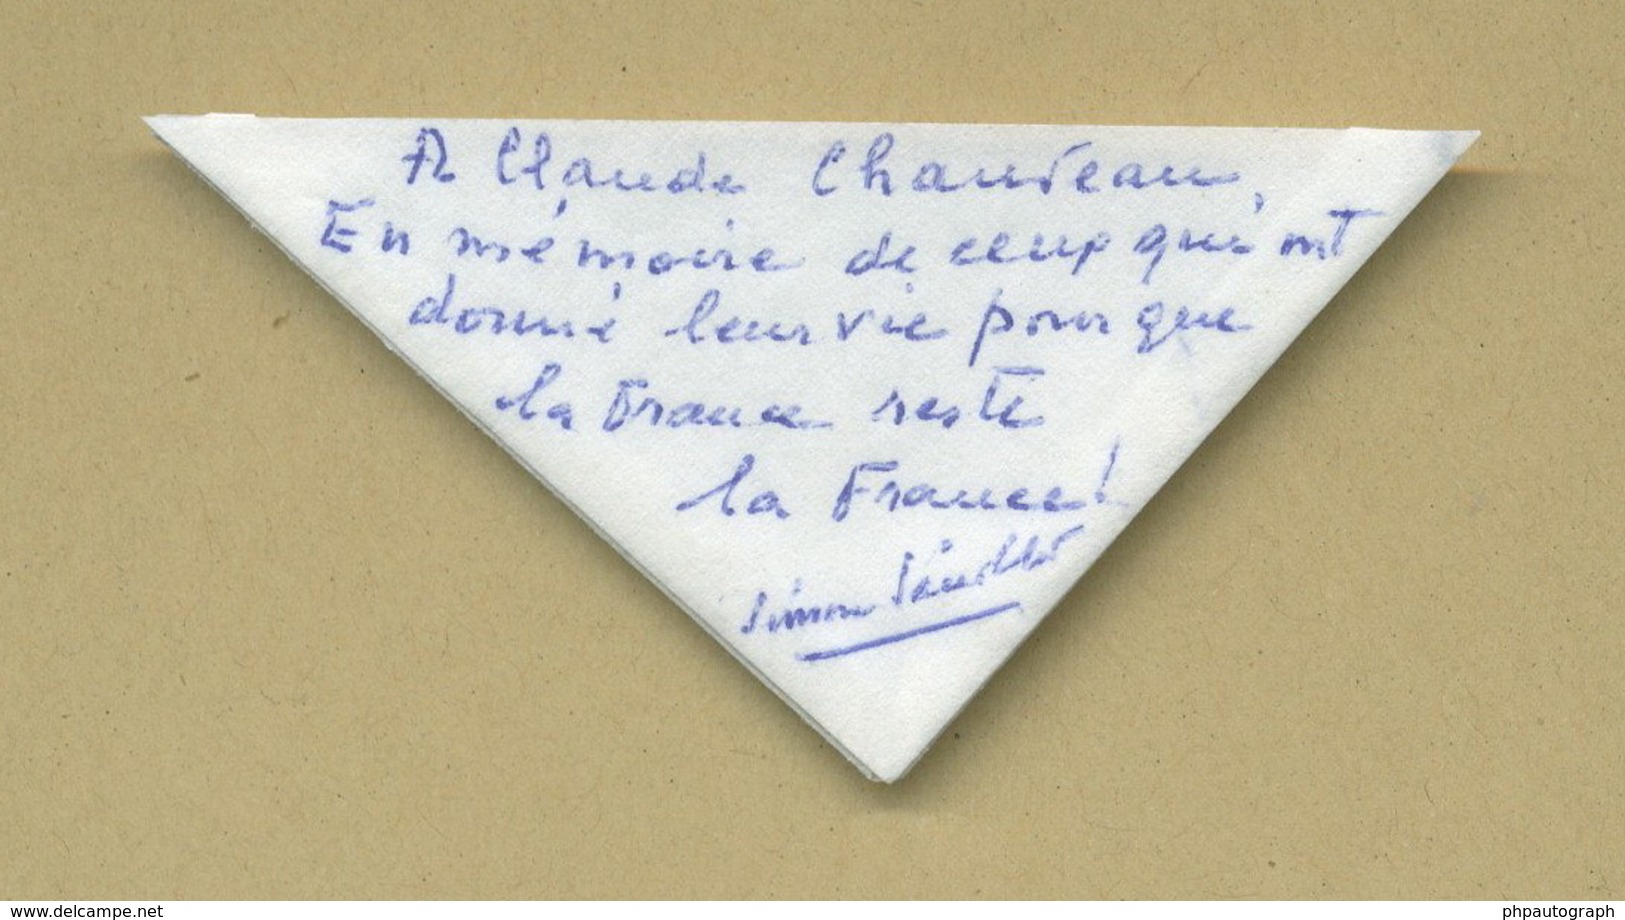 A Claude Chauveau,
En mémoire de ceux qui ont
donné leur vie pour que
la France reste
la France!
Simon
www.delcampe.net
phpautograph